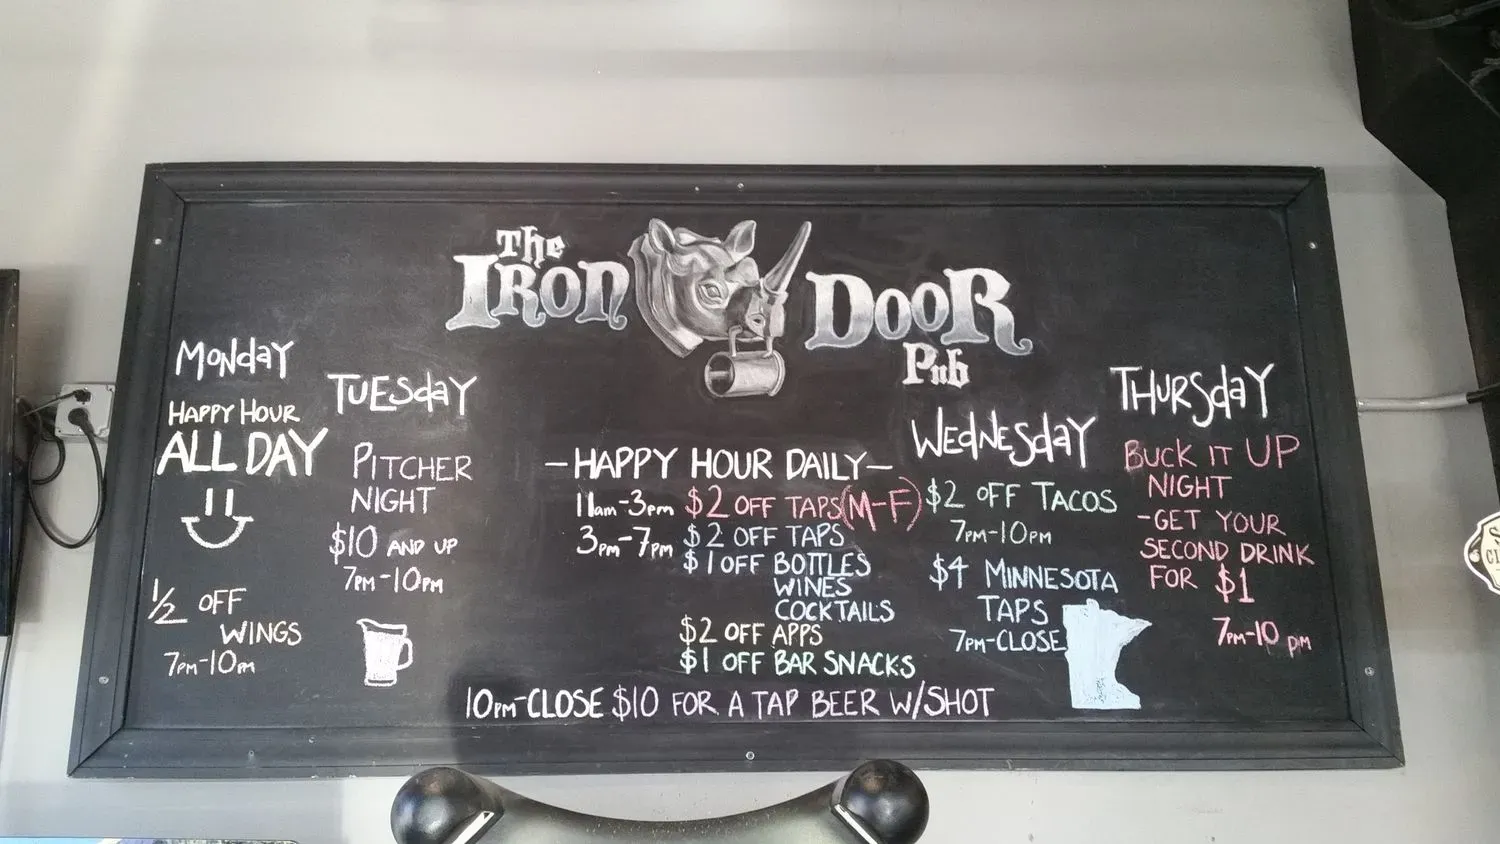 The
Iron Door
Pub
Monday
Happy Hour
ALL DAY
1/2 OFF
WINGS
7pm-10pm
Tuesday
PITCHER
NIGHT
$10 AND UP
7pm-10pm
-HAPPY HOUR DAILY-
11am-3pm $2 OFF TAPS (M-F)
3pm-7pm $2 OFF TAPS
$1 OFF BOTTLES
WINES
COCKTAILS
$2 OFF APPS
$1 OFF BAR SNACKS
10pm-CLOSE $10 FOR A TAP BEER W/SHOT
Wednesday
$2 OFF TACOS
7pm-10pm
$4 MINNESOTA
TAPS
7pm-CLOSE
THURSday
BUCK IT UP
NIGHT
-GET YOUR
SECOND DRINK
FOR $1
7pm-10pm